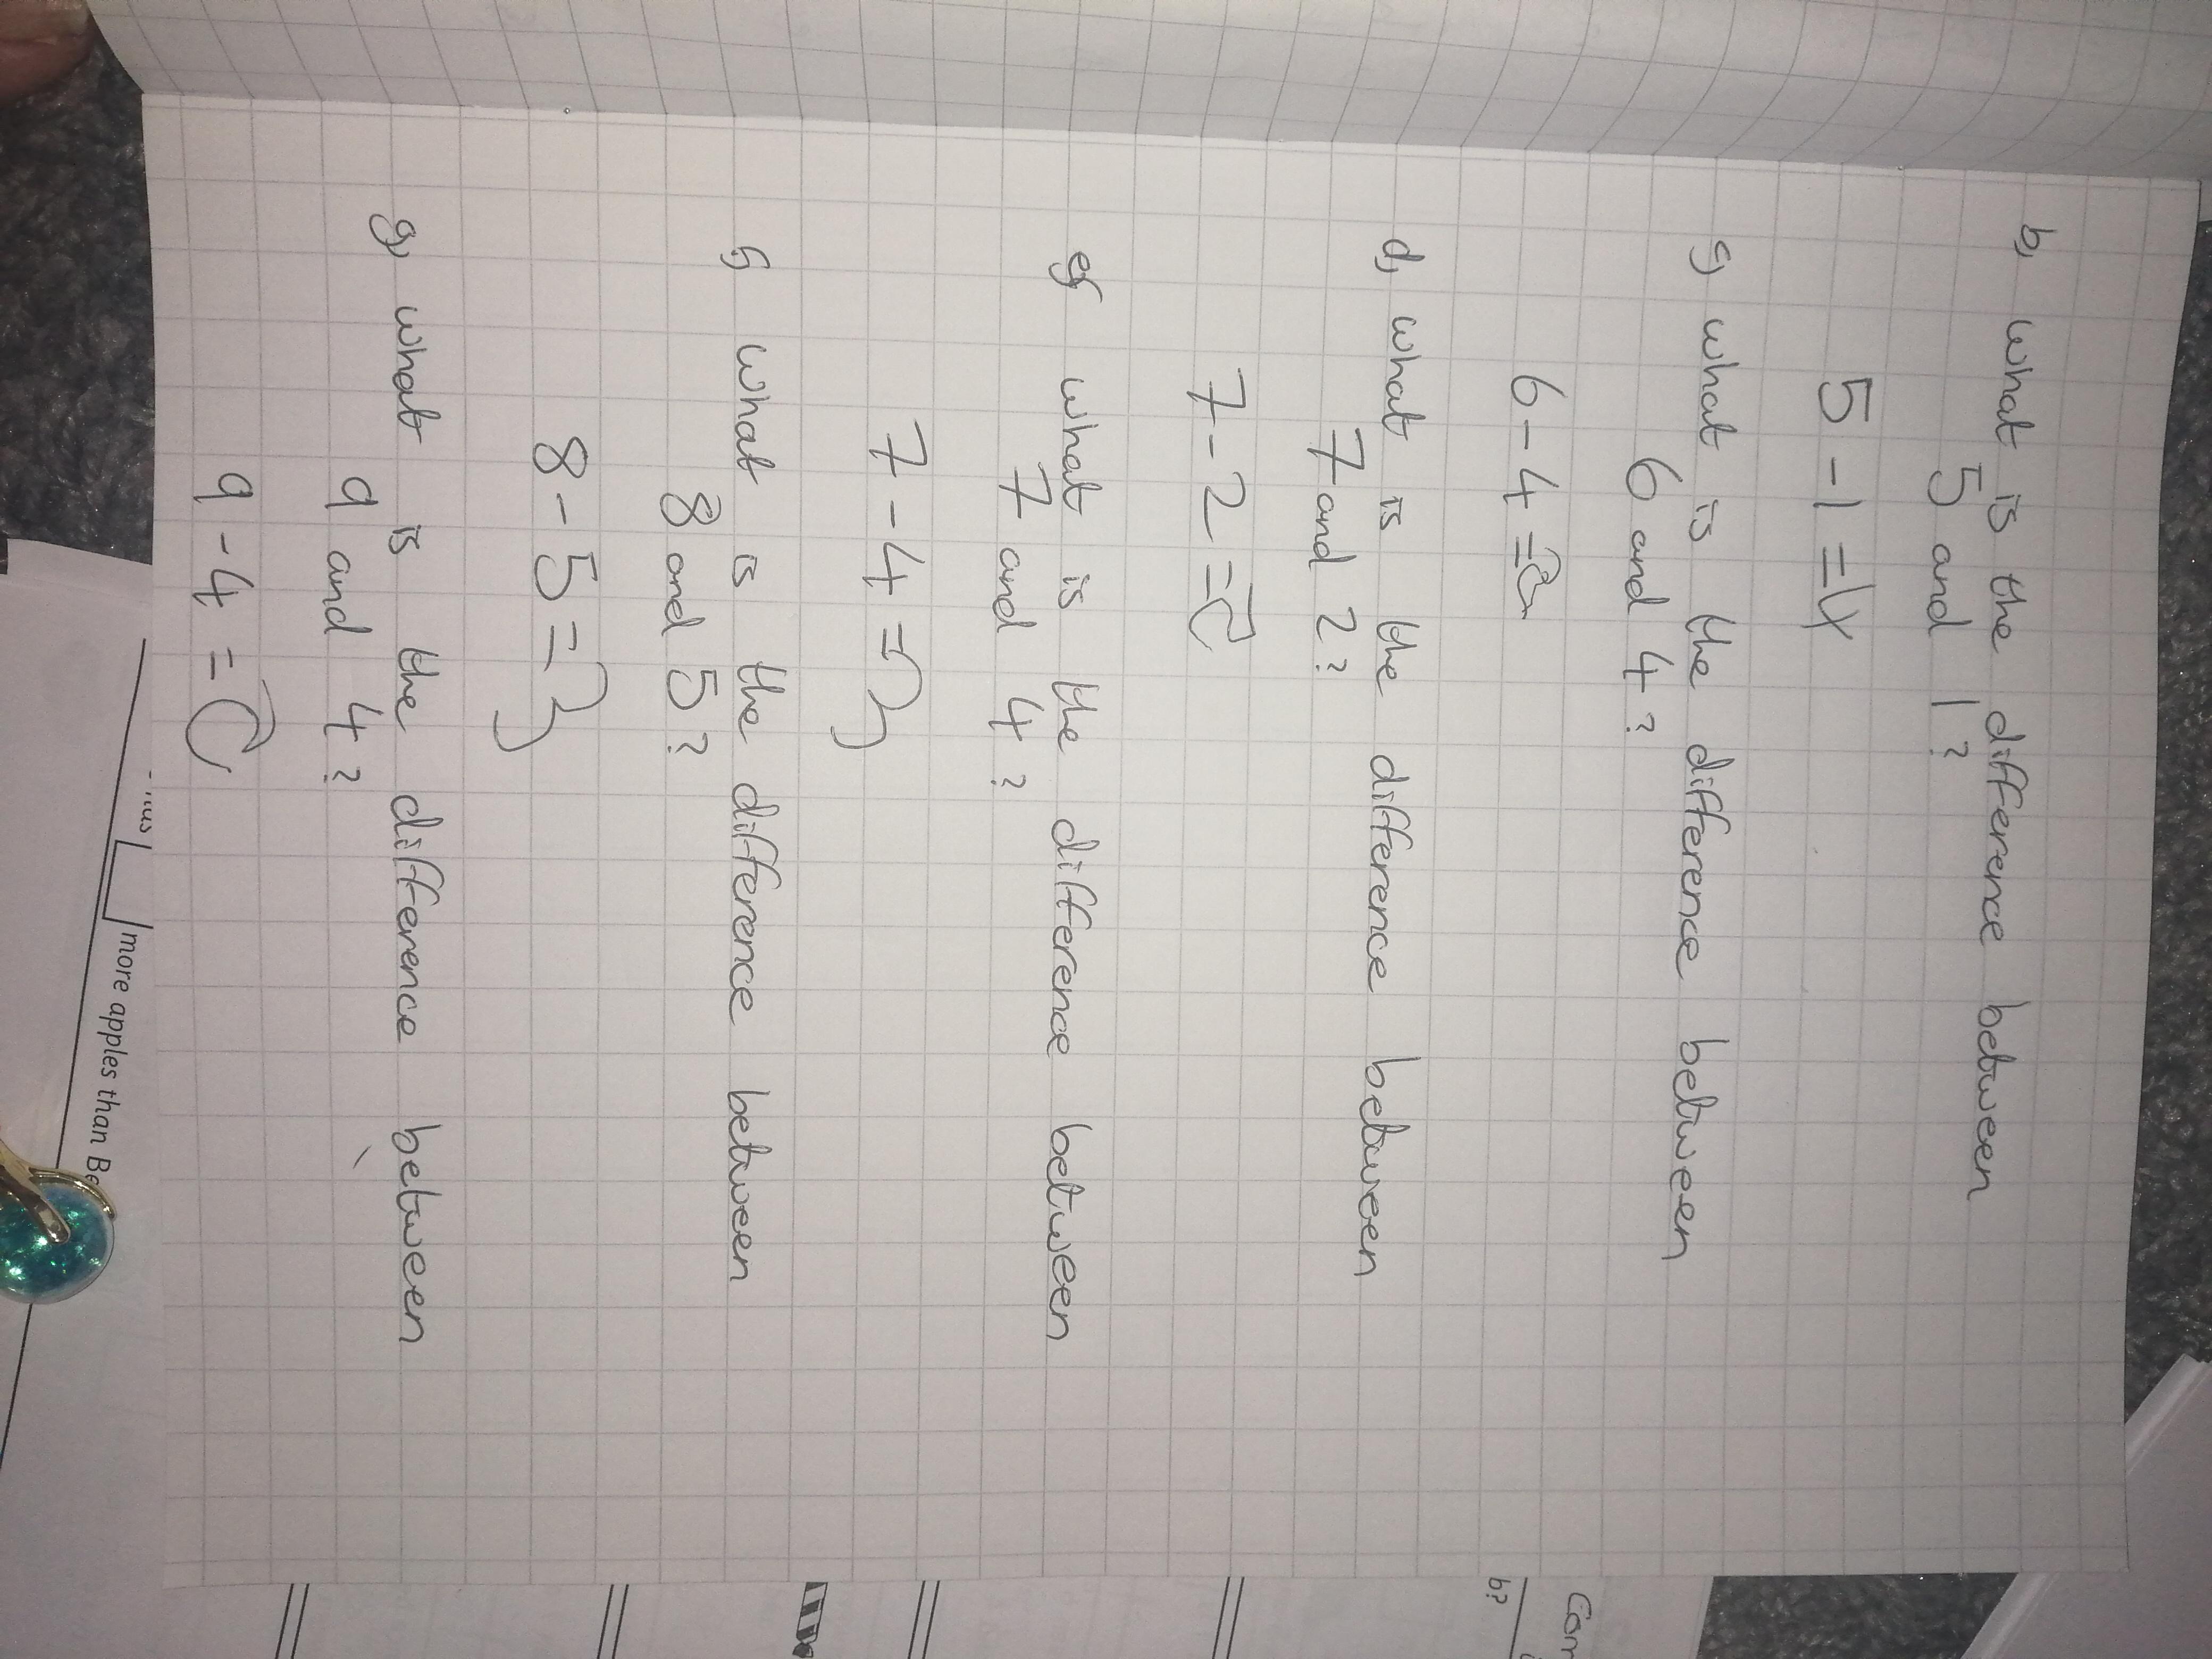 b, what is the difference between
5 and 1?
5 - 1 = 4
c, what is the difference between
6 and 4?
6 - 4 = 2
d, what is the difference between
7 and 2?
7 - 2 = 5
e, what is the difference between
7 and 4?
7 - 4 = 3
f, what is the difference between
8 and 5?
8 - 5 = 3
g, what is the difference between
9 and 4?
9 - 4 = 5
more apples than Be
Com
b?